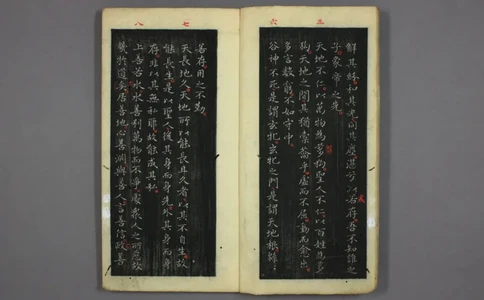 五
解其紛和其光同其塵湛兮似若存吾不知誰之
子象帝之先
天地不仁以萬物為芻狗聖人不仁以百姓為芻
狗天地之間其猶橐籥乎虛而不屈動而愈出
多言數窮不如守中
六
谷神不死是謂玄牝玄牝之門是謂天地根綿
若存用之不勤
七
天長地久天地所以能長且久者以其不自生故
能長生是以聖人後其身而身先外其身而身
存非以其無私邪故能成其私
八
上善若水水善利萬物而不爭處衆人之所惡故
幾於道矣居善地心善淵與善人言善信政善